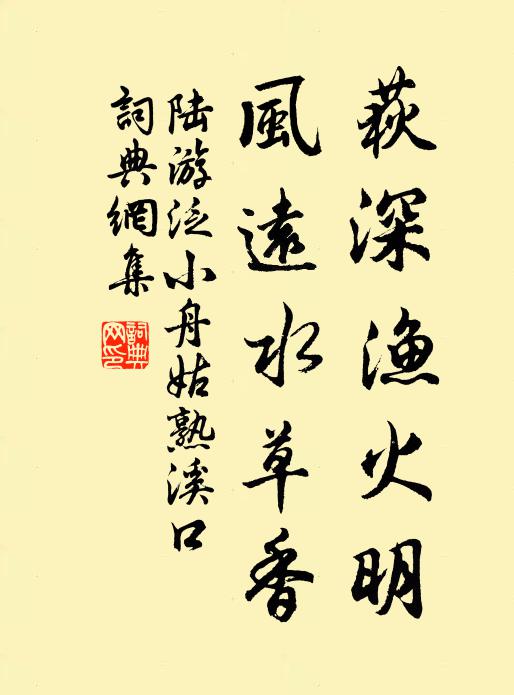 萩深漁火明
風遠水草香
陆游泛小舟姑熟溪口
詞典網集
詞典
网印